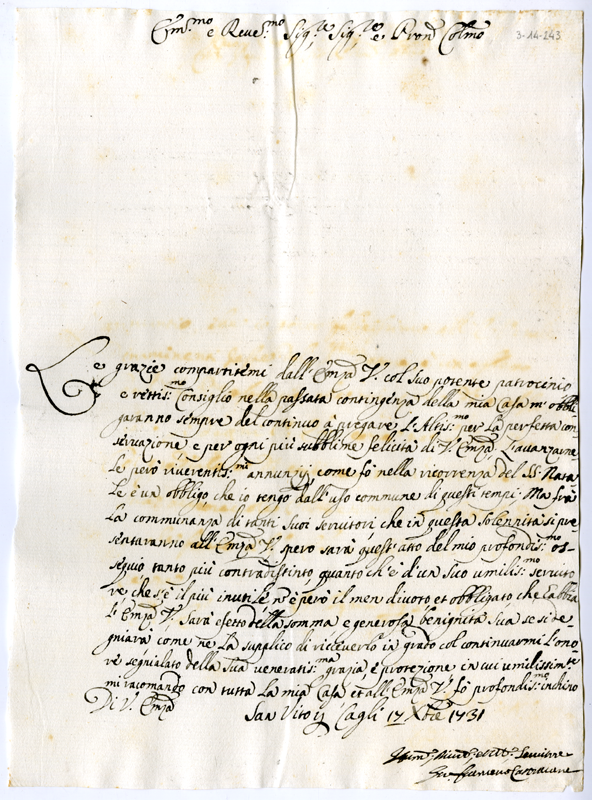 Em:mo e Reve:mo Sig:re Sig:re e Pron Colmo
3-14-243
Le grazie compartitemi dall'Em̃za V.ͣ col Suo potente patrocinio
e rettis:mo Consiglio nella passata contingenza della mia Casa m'obbli
garanno sempre del continuo à pregare l'Altis:mo per la perfetta con
servazione e per ogni più subblime felicità di V.ͣ Em̃za L'avanzarne
Le però riverentis:mi annunzij come fò nella ricorrenza del SS: Nata
le è un obbligo che io tengo dall'uso commune di questi tempi. Ma frà
la communanza di tanti Suoi servitori che in questa solennità si pre
sentaranno all'Em̃za V.ͣ spero sarà quest'atto del mio profondis:mo os-
sequio tanto più contradistinto quanto ch'è d'un Suo umilis:mo servito
re che s'è il più inutile nò è però il men divoto et obbligato che l'abbia
L'Em̃za V.ͣ Sarà efetto della somma e generosa benignità Sua se si de
gniarà come ne La supplico di riceverlo in grado col continuarmi l'ono
re segnialato della Sua veneratis:ma grazia e protezione in cui umilissimte
mi racomando con tutta La mia Casa et all'Em̃za V.ͣ fò profondis:mo inchino
Di V.ͣ Em̃za
San Vito Cagli 17 Xbre 1731
Servitore
Castracane